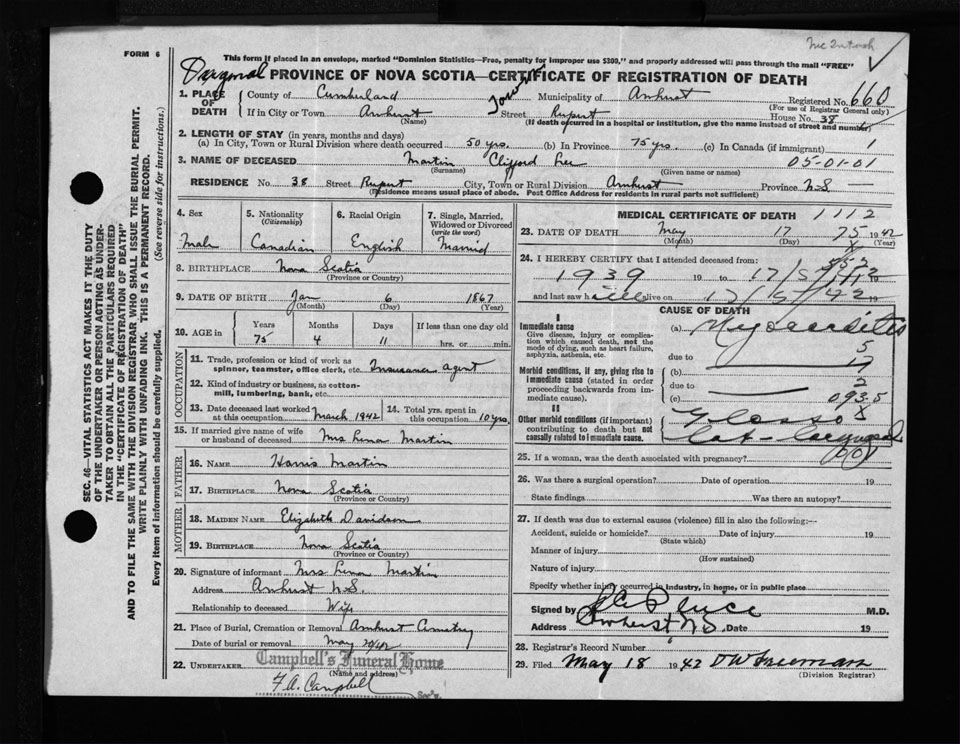 FORM 6
This form if placed in an envelope, marked "Dominion Statistics—Free, penalty for improper use $300," and properly addressed will pass through the mail "FREE"
PROVINCE OF NOVA SCOTIA—CERTIFICATE OF REGISTRATION OF DEATH
1. PLACE OF DEATH County of Cumberland Municipality of Amherst Registered No. 660
(For use of Registrar General only)
If in City or Town Amherst Street Rupert House No. 38
(Name) (If death occurred in a hospital or institution, give the name instead of street and number)
2. LENGTH OF STAY (in years, months and days)
(a) In City, Town or Rural Division where death occurred 50 yrs. (b) In Province 75 yrs. (c) In Canada (if immigrant)
3. NAME OF DECEASED Martin Clifford Lee 05-01-01
(Surname) (Given name or names)
RESIDENCE No. 38 Street Rupert City, Town or Rural Division Amherst Province N.S
(Residence means usual place of abode. Post Office Address for residents in rural parts not sufficient)
4. Sex Male
5. Nationality (Citizenship) Canadian
6. Racial Origin English
7. Single, Married, Widowed or Divorced (write the word) Married
8. BIRTHPLACE Nova Scotia
(Province or Country)
9. DATE OF BIRTH Jan 6 1867
(Month) (Day) (Year)
10. AGE in Years Months Days If less than one day old
75 4 11 hrs. or min.
OCCUPATION
11. Trade, profession or kind of work as spinner, teamster, office clerk, etc. Insurance agent
12. Kind of industry or business, as cotton-mill, lumbering, bank, etc.
13. Date deceased last worked at this occupation March 1942 14. Total yrs. spent in this occupation 10 yrs.
15. If married give name of wife or husband of deceased Mrs Lena Martin
FATHER
16. NAME Harris Martin
17. BIRTHPLACE Nova Scotia
(Province or Country)
MOTHER
18. MAIDEN NAME Elizabeth Davidson
19. BIRTHPLACE Nova Scotia
(Province or Country)
20. Signature of informant Mrs Lena Martin
Address Amherst N.S.
Relationship to deceased Wife
21. Place of Burial, Cremation or Removal Amherst Cemetery
Date of burial or removal May 20/42
22. UNDERTAKER Campbell's Funeral Home
(Name and address)
F.A. Campbell
MEDICAL CERTIFICATE OF DEATH 1112
23. DATE OF DEATH May 17 1942
(Month) (Day) (Year)
24. I HEREBY CERTIFY that I attended deceased from:
1939 19 to 17/5/42
and last saw h alive on 17/5/42 19
CAUSE OF DEATH
I
Immediate cause
Give disease, injury or complication which caused death, not the mode of dying, such as heart failure, asphyxia, asthenia, etc.
(a) Myocarditis
due to
Morbid conditions, if any, giving rise to immediate cause (stated in order proceeding backwards from immediate cause).
(b)
due to
(c) 093.5
II
Other morbid conditions (if important) contributing to death but not causally related to immediate cause.
Glosso
25. If a woman, was the death associated with pregnancy?
26. Was there a surgical operation? Date of operation 19
State findings Was there an autopsy?
27. If death was due to external causes (violence) fill in also the following:—
Accident, suicide or homicide? Date of injury 19
(State which)
Manner of injury
(How sustained)
Nature of injury
Specify whether injury occurred in industry, in home, or in public place
Signed by M.D.
Address Amherst N S Date 19
28. Registrar's Record Number
29. Filed May 18 1942 D W Freeman
(Division Registrar)
SEC. 46—VITAL STATISTICS ACT MAKES IT THE DUTY
OF THE UNDERTAKER OR PERSON ACTING AS UNDER-
TAKER TO OBTAIN ALL THE PARTICULARS REQUIRED
IN THE "CERTIFICATE OF REGISTRATION OF DEATH"
AND TO FILE THE SAME WITH THE DIVISION REGISTRAR WHO SHALL ISSUE THE BURIAL PERMIT.
WRITE PLAINLY WITH UNFADING INK. THIS IS A PERMANENT RECORD.
Every item of information should be carefully supplied. (See reverse side for instructions.)